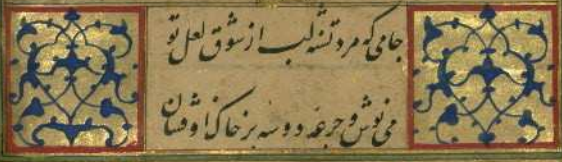 جامی که مرد تشنه لب از شوق لعل تو
می نوش و جرعه دو سه بر خاک او فشان